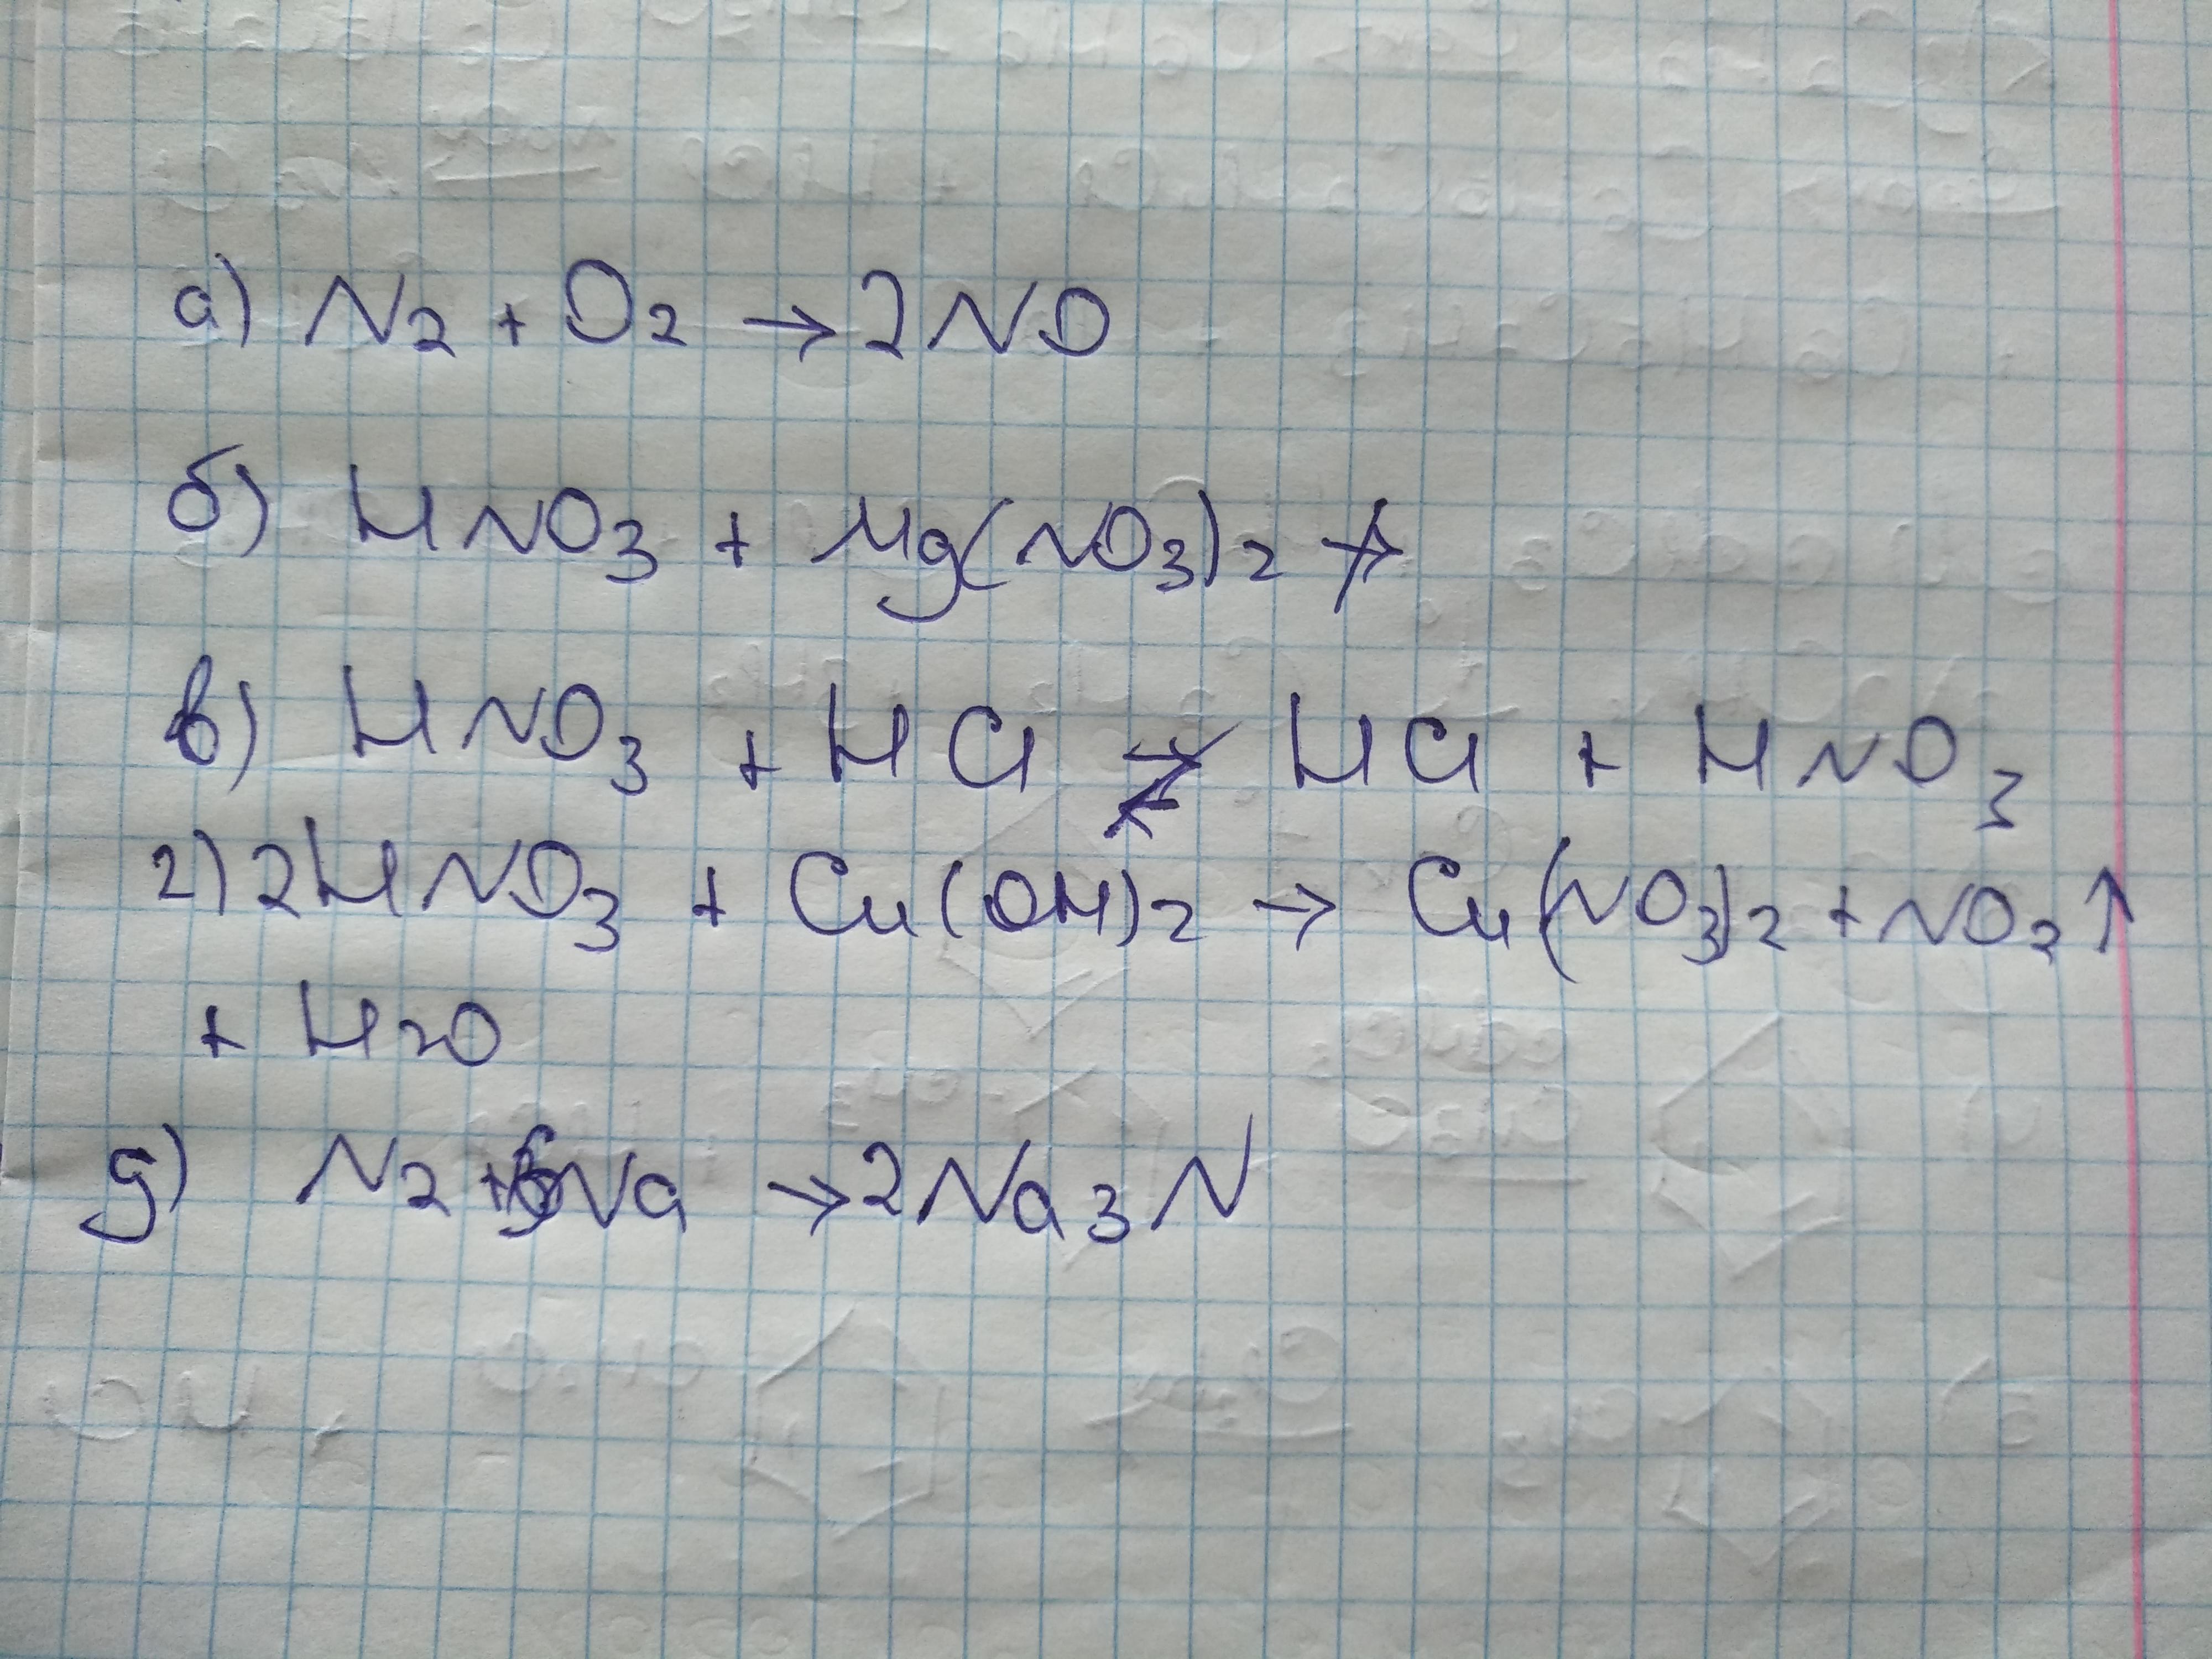 а) N2 + O2 → 2NO
б) HNO3 + Mg(NO3)2 ↛
в) HNO3 + HCl ⇄ HCl + HNO3
г) 2HNO3 + Cu(OH)2 → Cu(NO3)2 + NO2↑
+ H2O
д) N2 + 6Na → 2Na3N